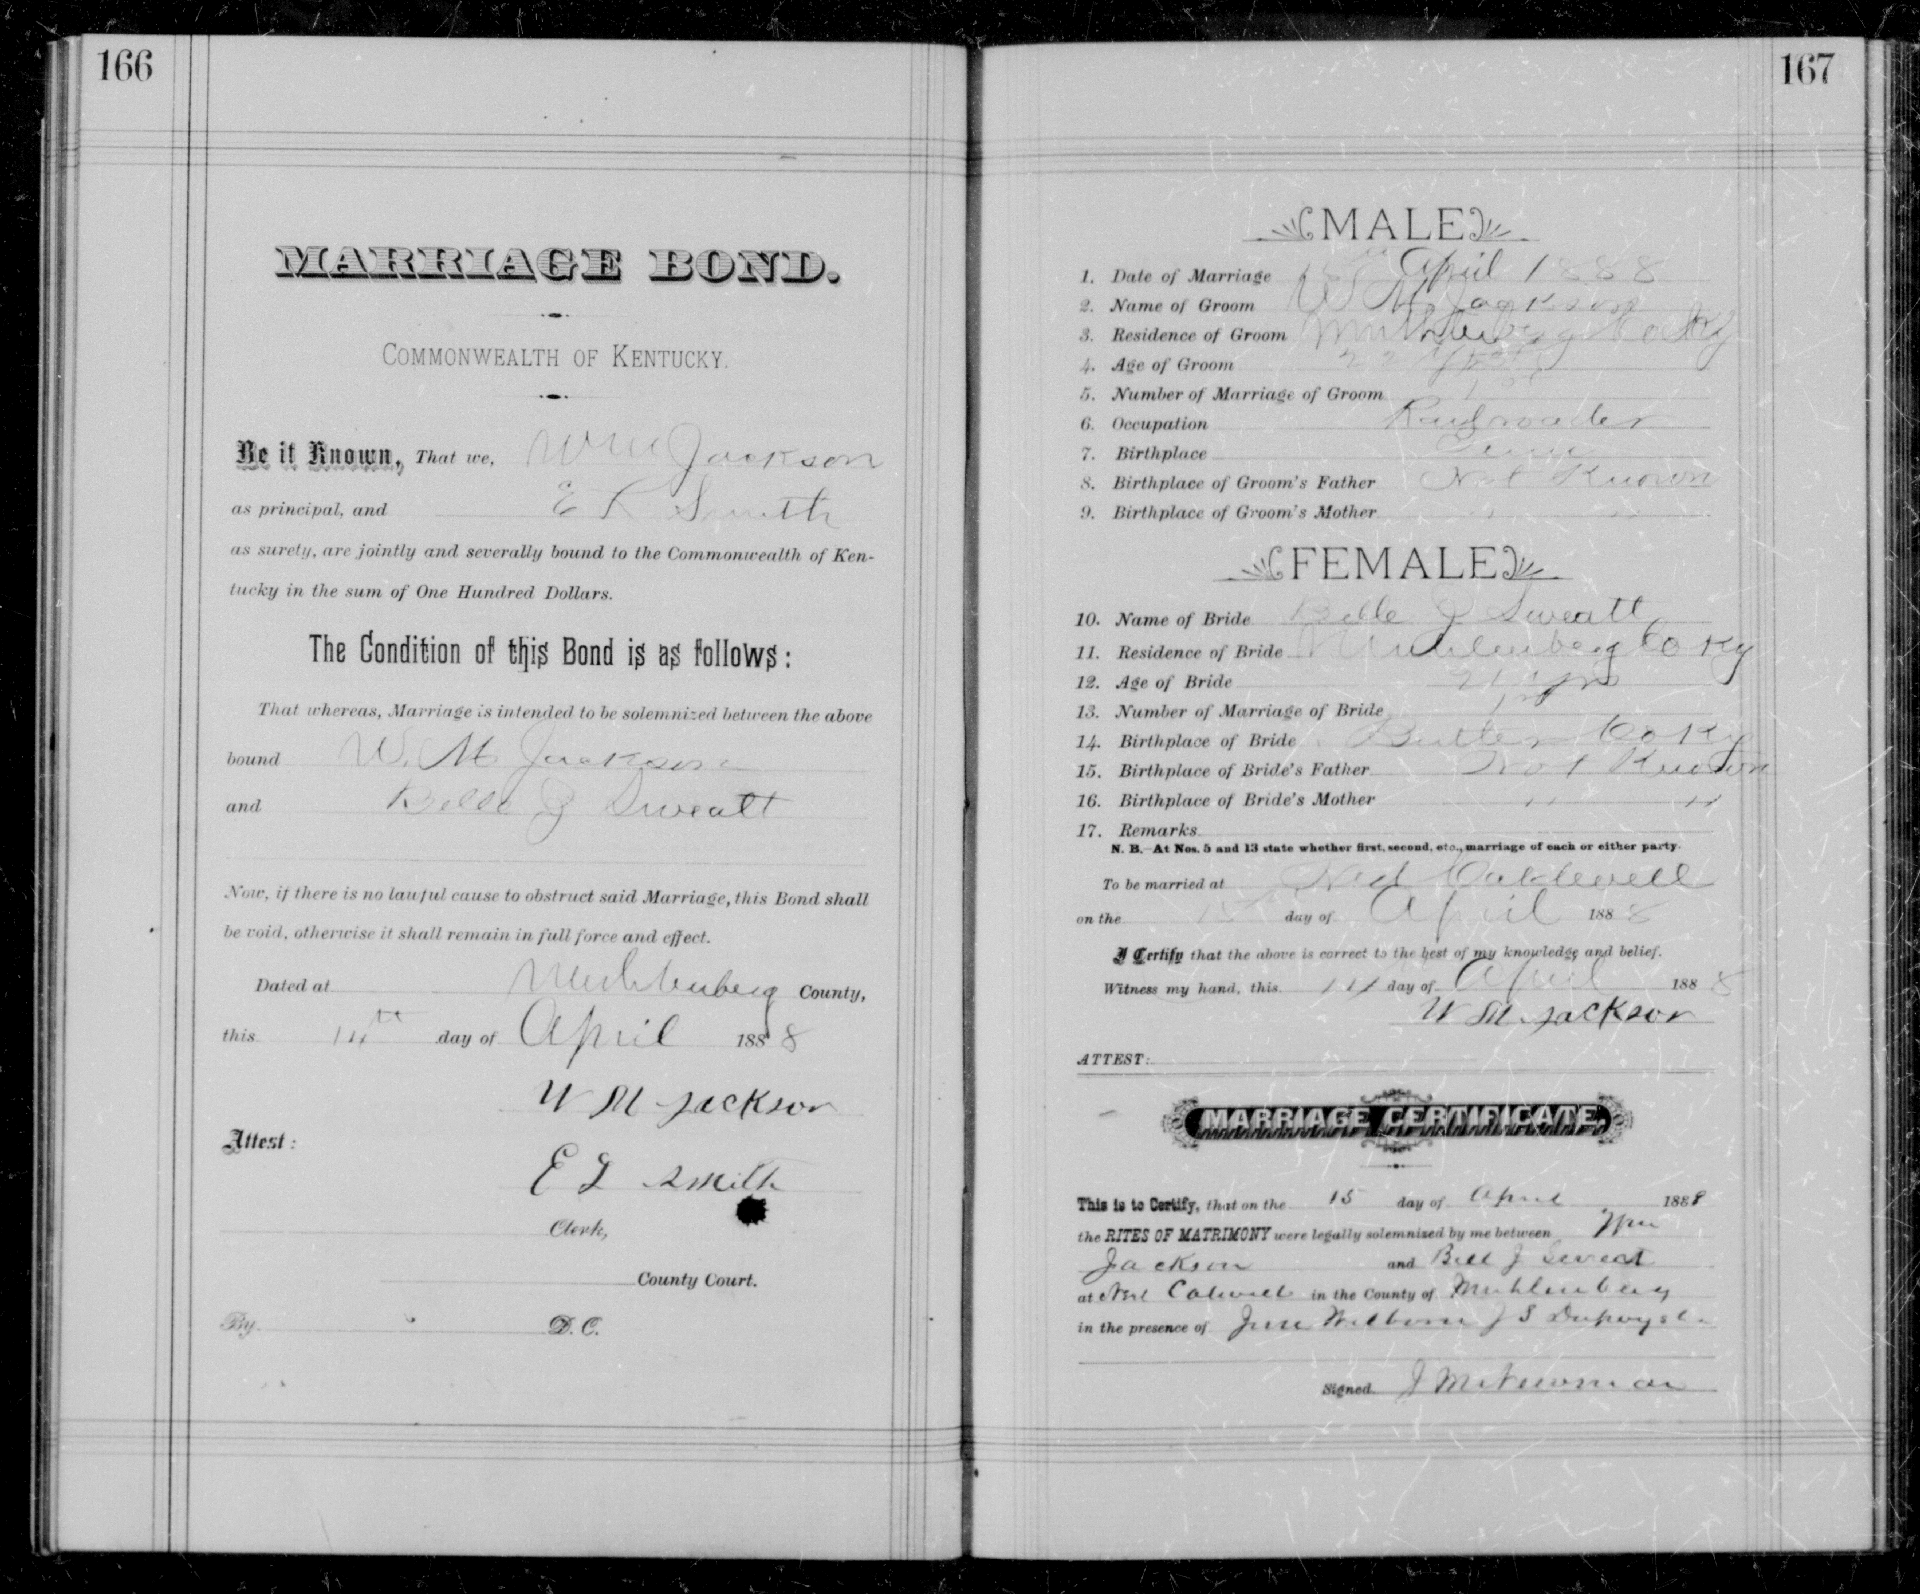 166
MARRIAGE BOND.
COMMONWEALTH OF KENTUCKY.
Be it Known, That we, Wm Jackson
as principal, and E L Smith
as surety, are jointly and severally bound to the Commonwealth of Ken-
tucky in the sum of One Hundred Dollars.
The Condition of this Bond is as follows:
That whereas, Marriage is intended to be solemnized between the above
bound W. M. Jackson
and Belle J Sweatt
Now, if there is no lawful cause to obstruct said Marriage, this Bond shall
be void, otherwise it shall remain in full force and effect.
Dated at Muhlenberg County,
this 14th day of April 1888
W M Jackson
Attest:
E L Smith
Clerk,
County Court.
By D. C.
167
MALE
1. Date of Marriage April 1888
2. Name of Groom W M Jackson
3. Residence of Groom Muhlenberg Co Ky
4. Age of Groom 22 yrs
5. Number of Marriage of Groom 1st
6. Occupation Railroader
7. Birthplace Tenn
8. Birthplace of Groom's Father Not Known
9. Birthplace of Groom's Mother " "
FEMALE
10. Name of Bride Belle J Sweatt
11. Residence of Bride Muhlenberg Co Ky
12. Age of Bride 21 yrs
13. Number of Marriage of Bride 1st
14. Birthplace of Bride Butler Co Ky
15. Birthplace of Bride's Father Not Known
16. Birthplace of Bride's Mother " "
17. Remarks
N. B.—At Nos. 5 and 13 state whether first, second, etc., marriage of each or either party.
To be married at Ned
on the 15th day of April 1888
I Certify that the above is correct to the best of my knowledge and belief.
Witness my hand, this 14 day of April 1888
W M Jackson
ATTEST:
MARRIAGE CERTIFICATE.
This is to Certify, that on the 15 day of April 1888
the RITES OF MATRIMONY were legally solemnized by me between Wm
Jackson and Bell J Sweat
at Ned in the County of Muhlenberg
in the presence of J S
Signed J M Newman